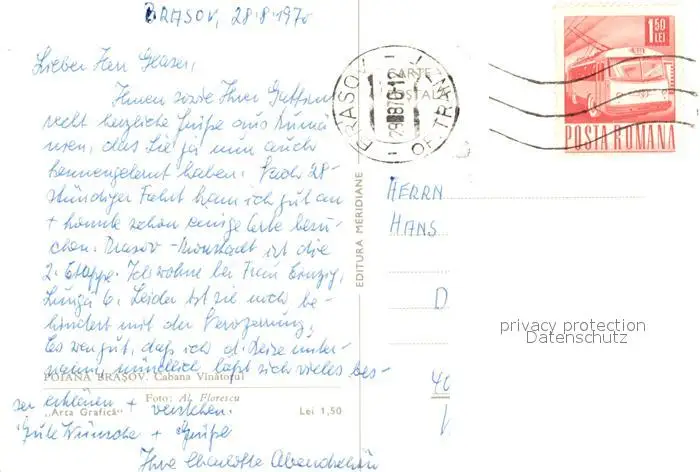 BRASOV, 28.8.1970
Lieber Herr Glaser,
Ihnen sowie Ihrer Gattin
recht herzliche Grüße aus Rumä
nien, das Sie ja nun auch
kennengelernt haben. Nach 28-
stündiger Fahrt kam ich gut an
+ konnte schon einige Orte besu-
chen. Brasov - Kronstadt ist die
2. Etappe. Ich wohne bei Frau
Lunga 6. Leider ist sie noch be-
hindert mit der
Es war gut, daß ich d. Reise unter-
nahm, mündlich läßt sich vieles bes-
ser erklären + verstehen.
Gute Wünsche + Grüße
Ihre Charlotte
POIANA BRAȘOV. Cabana Vînătorul
Foto: Al. Florescu
„Arta Grafică“ Lei 1,50
EDITURA MERIDIANE
CARTE
POȘTALĂ
BRASOV
29.8.70-12
OF. TRANZ
1.50
LEI
POSTA ROMANA
HERRN
HANS
D
40
privacy protection
Datenschutz